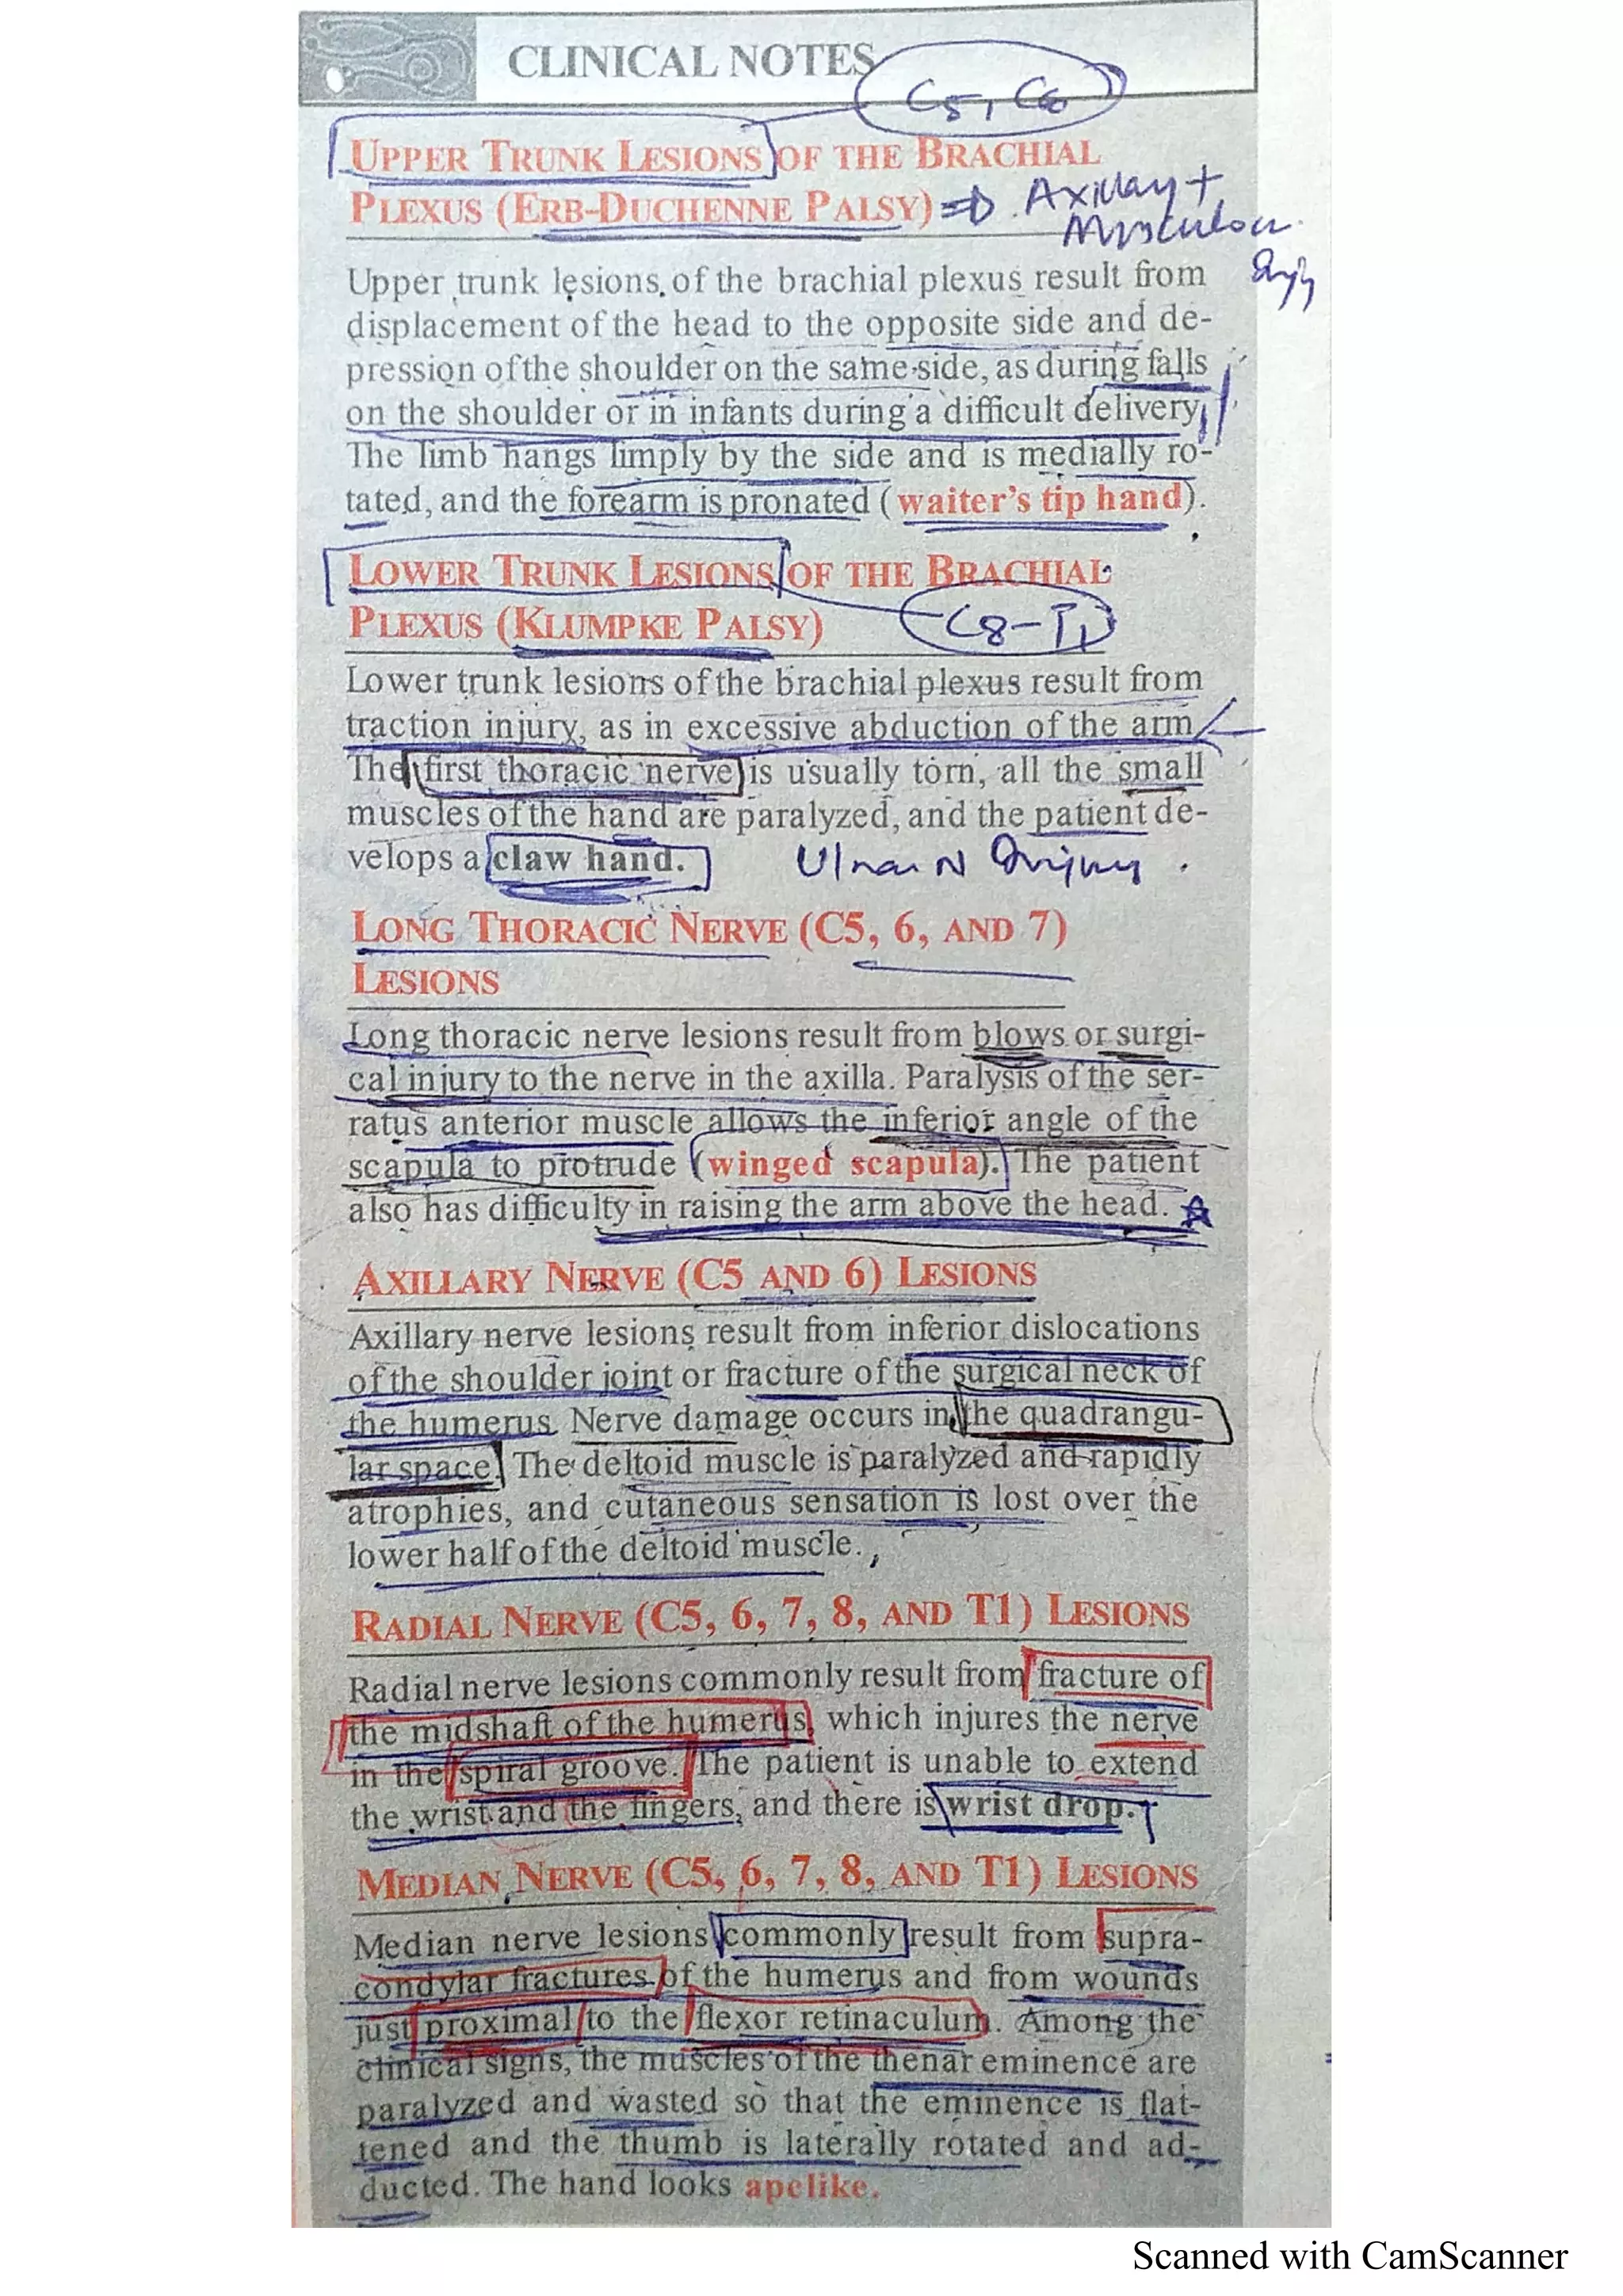 CLINICAL NOTES
C5, C6
UPPER TRUNK LESIONS OF THE BRACHIAL
PLEXUS (ERB-DUCHENNE PALSY) ⇒ Axillary +
Musculocu.
Injy
Upper trunk lesions of the brachial plexus result from
displacement of the head to the opposite side and de-
pression of the shoulder on the same side, as during falls
on the shoulder or in infants during a difficult delivery.
The limb hangs limply by the side and is medially ro-
tated, and the forearm is pronated (waiter's tip hand).
LOWER TRUNK LESIONS OF THE BRACHIAL
PLEXUS (KLUMPKE PALSY) C8-T1
Lower trunk lesions of the brachial plexus result from
traction injury, as in excessive abduction of the arm.
The first thoracic nerve is usually torn, all the small
muscles of the hand are paralyzed, and the patient de-
velops a claw hand. Ulnar N Injury.
LONG THORACIC NERVE (C5, 6, AND 7)
LESIONS
Long thoracic nerve lesions result from blows or surgi-
cal injury to the nerve in the axilla. Paralysis of the ser-
ratus anterior muscle allows the inferior angle of the
scapula to protrude (winged scapula). The patient
also has difficulty in raising the arm above the head.
AXILLARY NERVE (C5 AND 6) LESIONS
Axillary nerve lesions result from inferior dislocations
of the shoulder joint or fracture of the surgical neck of
the humerus. Nerve damage occurs in the quadrangu-
lar space. The deltoid muscle is paralyzed and rapidly
atrophies, and cutaneous sensation is lost over the
lower half of the deltoid muscle.
RADIAL NERVE (C5, 6, 7, 8, AND T1) LESIONS
Radial nerve lesions commonly result from fracture of
the midshaft of the humerus, which injures the nerve
in the spiral groove. The patient is unable to extend
the wrist and the fingers, and there is wrist drop.
MEDIAN NERVE (C5, 6, 7, 8, AND T1) LESIONS
Median nerve lesions commonly result from supra-
condylar fractures of the humerus and from wounds
just proximal to the flexor retinaculum. Among the
clinical signs, the muscles of the thenar eminence are
paralyzed and wasted so that the eminence is flat-
tened and the thumb is laterally rotated and ad-
ducted. The hand looks apelike.
Scanned with CamScanner